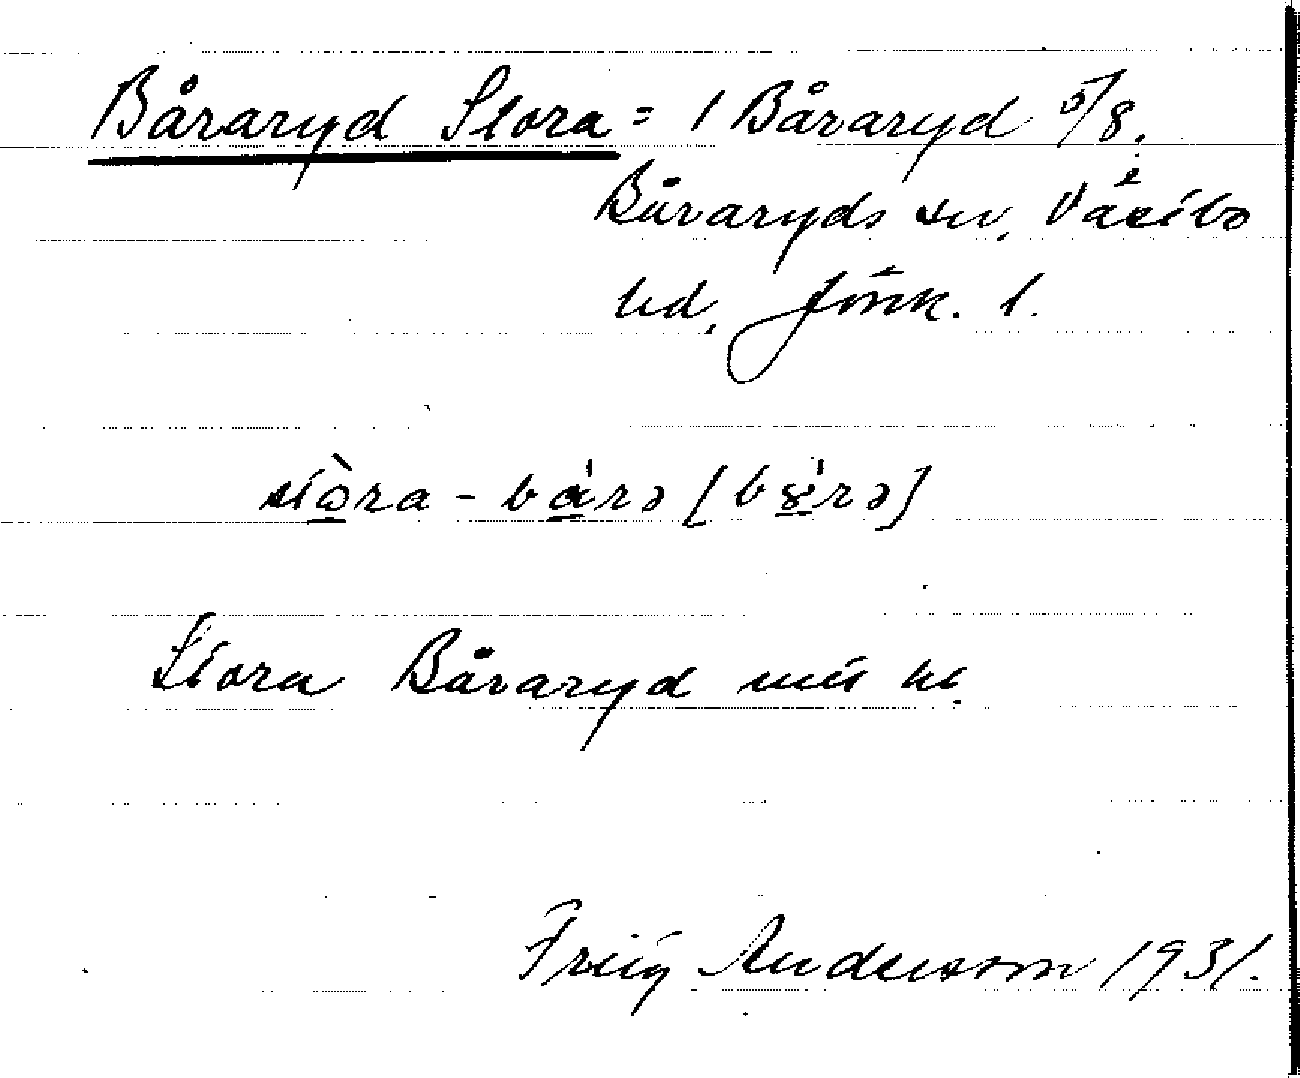 Båraryd Stora = 1 Båraryd 5/8.
Båraryds sn, Västbo
hd, Jönk. l.
stòra - bárə [bɤ́rə]
Stora Båraryd
Andersson 1931.